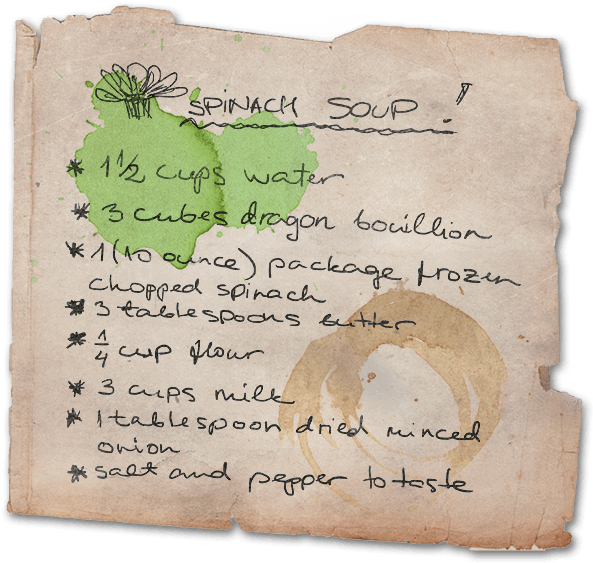 SPINACH SOUP!
* 1 1/2 cups water
* 3 cubes dragon bouillion
* 1 (10 ounce) package frozen
chopped spinach
* 3 tablespoons butter
* 1/4 cup flour
* 3 cups milk
* 1 tablespoon dried minced
onion
* salt and pepper to taste